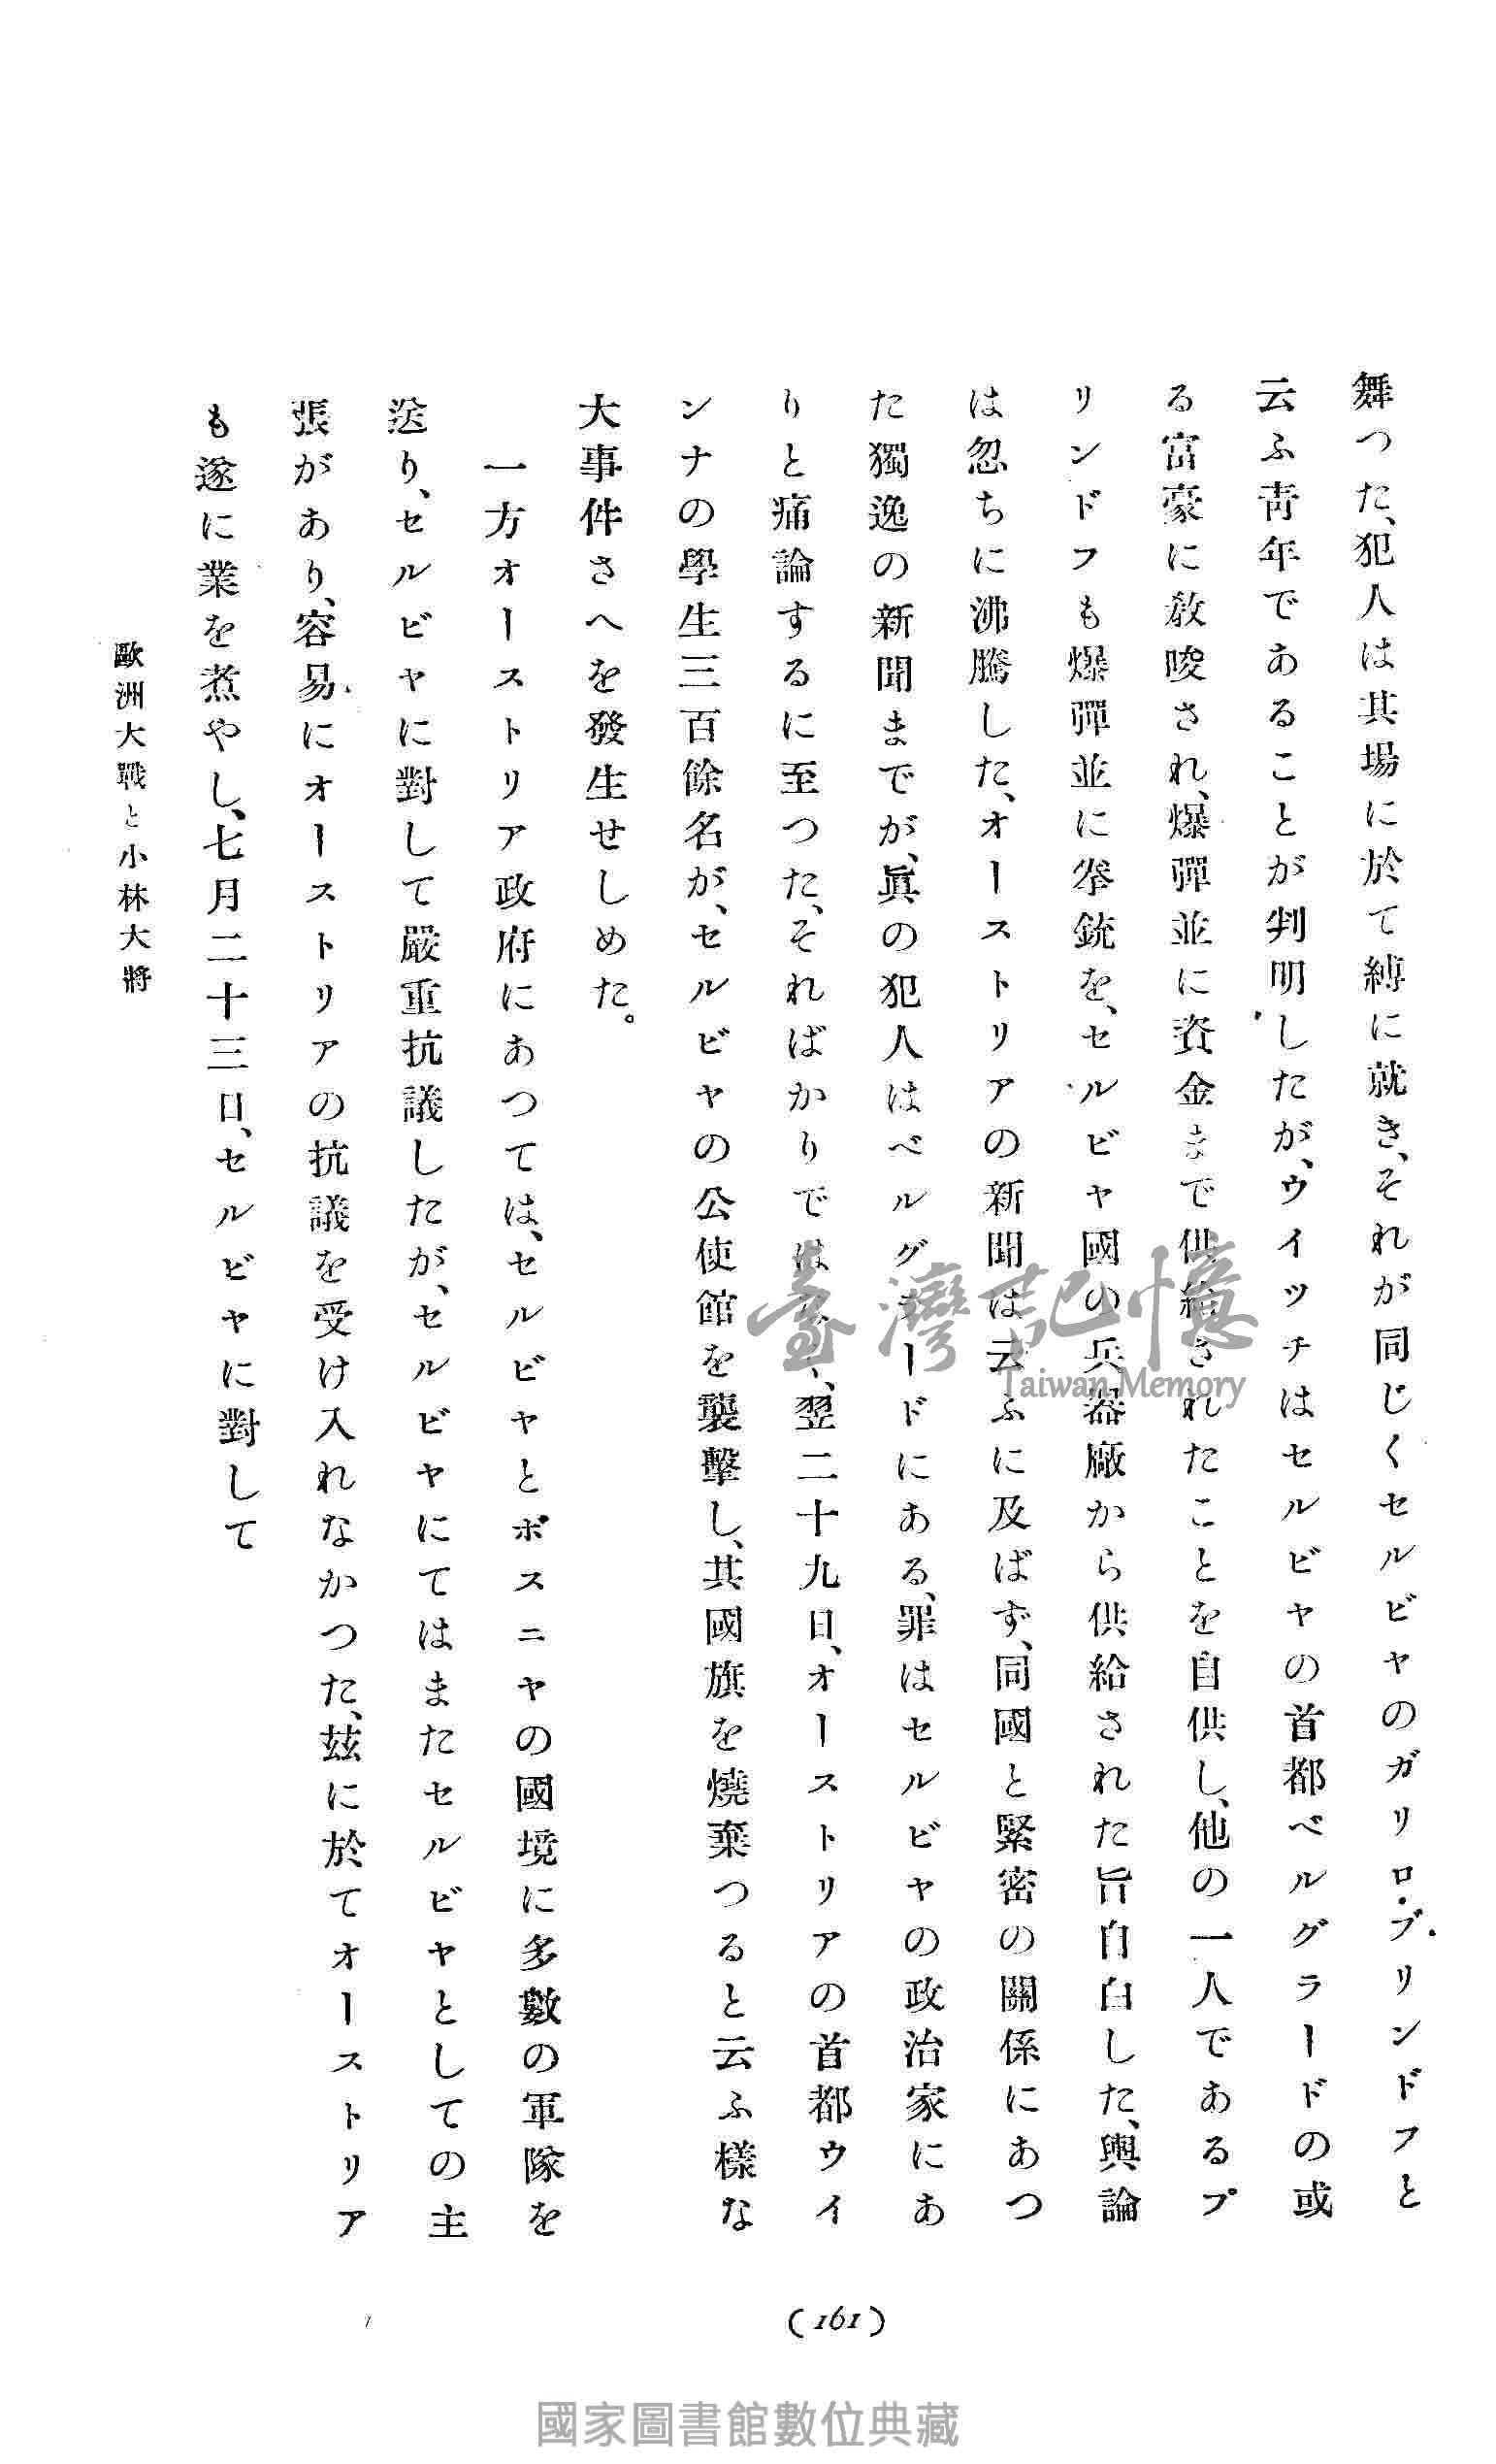 舞つた、犯人は其場に於て縛に就き、それが同じくセルビヤのガリロ・ブリンドフと
云ふ靑年であることが判明したが、ウイツチはセルビヤの首都ベルグラードの或
る富豪に敎唆され、爆彈並に資金まで供給されたことを自供し、他の一人であるプ
リンドフも爆彈並に拳銃を、セルビヤ國の兵器廠から供給された旨自白した、輿論
は忽ちに沸騰した、オーストリアの新聞は云ふに及ばず、同國と緊密の關係にあつ
た獨逸の新聞までが、眞の犯人はベルグラードにある、罪はセルビヤの政治家にあ
りと痛論するに至つた、そればかりではなく、翌二十九日、オーストリアの首都ウイ
ンナの學生三百餘名が、セルビヤの公使館を襲擊し、其國旗を燒棄つると云ふ樣な
大事件さへを發生せしめた。
一方オーストリア政府にあつては、セルビヤとボスニヤの國境に多數の軍隊を
送り、セルビヤに對して嚴重抗議したが、セルビヤにてはまたセルビヤとしての主
張があり、容易にオーストリアの抗議を受け入れなかつた、玆に於てオーストリア
も遂に業を煮やし、七月二十三日、セルビヤに對して
歐洲大戰と小林大將
(161)
臺灣記憶
Taiwan Memory
國家圖書館數位典藏